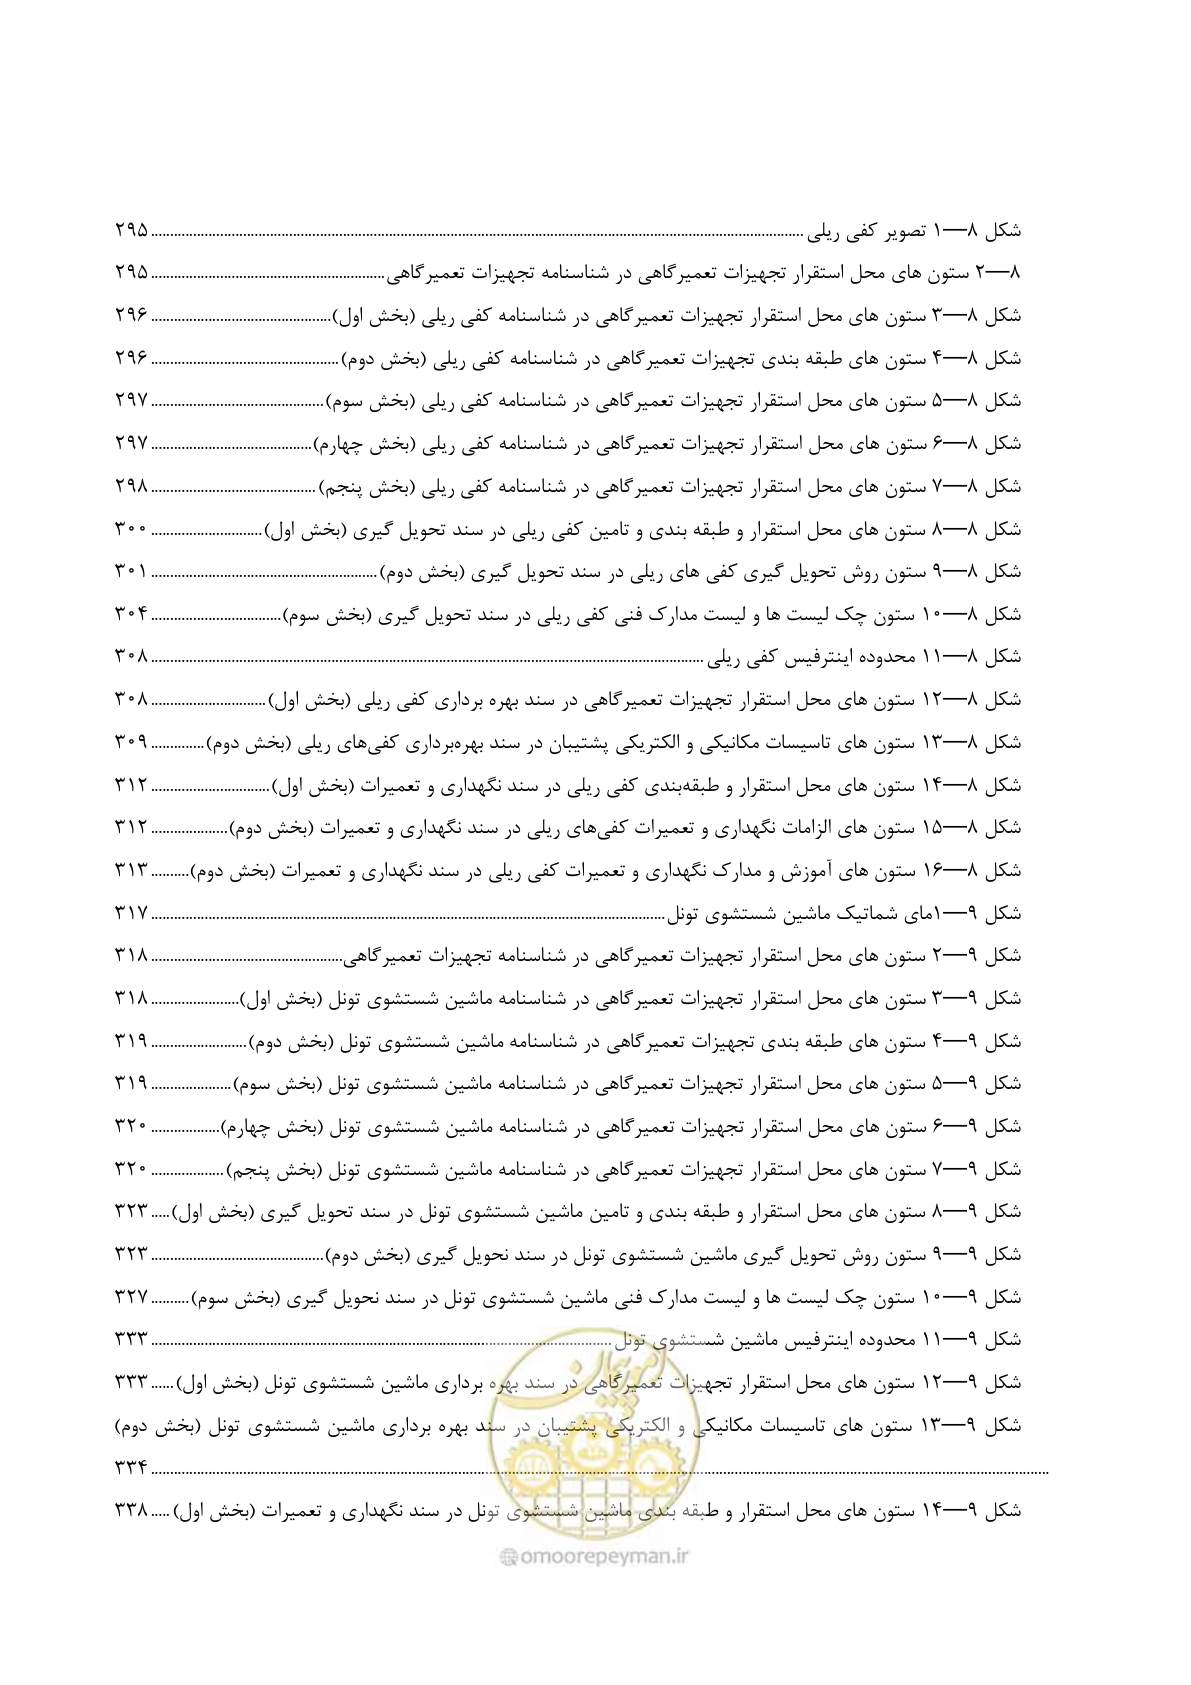 شکل ۸—۱ تصویر کفی ریلی ........ ۲۹۵
۸—۲ ستون های محل استقرار تجهیزات تعمیرگاهی در شناسنامه تجهیزات تعمیرگاهی ........ ۲۹۵
شکل ۸—۳ ستون های محل استقرار تجهیزات تعمیرگاهی در شناسنامه کفی ریلی (بخش اول) ........ ۲۹۶
شکل ۸—۴ ستون های طبقه بندی تجهیزات تعمیرگاهی در شناسنامه کفی ریلی (بخش دوم) ........ ۲۹۶
شکل ۸—۵ ستون های محل استقرار تجهیزات تعمیرگاهی در شناسنامه کفی ریلی (بخش سوم) ........ ۲۹۷
شکل ۸—۶ ستون های محل استقرار تجهیزات تعمیرگاهی در شناسنامه کفی ریلی (بخش چهارم) ........ ۲۹۷
شکل ۸—۷ ستون های محل استقرار تجهیزات تعمیرگاهی در شناسنامه کفی ریلی (بخش پنجم) ........ ۲۹۸
شکل ۸—۸ ستون های محل استقرار و طبقه بندی و تامین کفی ریلی در سند تحویل گیری (بخش اول) ........ ۳۰۰
شکل ۸—۹ ستون روش تحویل گیری کفی های ریلی در سند تحویل گیری (بخش دوم) ........ ۳۰۱
شکل ۸—۱۰ ستون چک لیست ها و لیست مدارک فنی کفی ریلی در سند تحویل گیری (بخش سوم) ........ ۳۰۴
شکل ۸—۱۱ محدوده اینترفیس کفی ریلی ........ ۳۰۸
شکل ۸—۱۲ ستون های محل استقرار تجهیزات تعمیرگاهی در سند بهره برداری کفی ریلی (بخش اول) ........ ۳۰۸
شکل ۸—۱۳ ستون های تاسیسات مکانیکی و الکتریکی پشتیبان در سند بهره‌برداری کفی‌های ریلی (بخش دوم) ........ ۳۰۹
شکل ۸—۱۴ ستون های محل استقرار و طبقه‌بندی کفی ریلی در سند نگهداری و تعمیرات (بخش اول) ........ ۳۱۲
شکل ۸—۱۵ ستون های الزامات نگهداری و تعمیرات کفی‌های ریلی در سند نگهداری و تعمیرات (بخش دوم) ........ ۳۱۲
شکل ۸—۱۶ ستون های آموزش و مدارک نگهداری و تعمیرات کفی ریلی در سند نگهداری و تعمیرات (بخش دوم) ........ ۳۱۳
شکل ۹—۱مای شماتیک ماشین شستشوی تونل ........ ۳۱۷
شکل ۹—۲ ستون های محل استقرار تجهیزات تعمیرگاهی در شناسنامه تجهیزات تعمیرگاهی ........ ۳۱۸
شکل ۹—۳ ستون های محل استقرار تجهیزات تعمیرگاهی در شناسنامه ماشین شستشوی تونل (بخش اول) ........ ۳۱۸
شکل ۹—۴ ستون های طبقه بندی تجهیزات تعمیرگاهی در شناسنامه ماشین شستشوی تونل (بخش دوم) ........ ۳۱۹
شکل ۹—۵ ستون های محل استقرار تجهیزات تعمیرگاهی در شناسنامه ماشین شستشوی تونل (بخش سوم) ........ ۳۱۹
شکل ۹—۶ ستون های محل استقرار تجهیزات تعمیرگاهی در شناسنامه ماشین شستشوی تونل (بخش چهارم) ........ ۳۲۰
شکل ۹—۷ ستون های محل استقرار تجهیزات تعمیرگاهی در شناسنامه ماشین شستشوی تونل (بخش پنجم) ........ ۳۲۰
شکل ۹—۸ ستون های محل استقرار و طبقه بندی و تامین ماشین شستشوی تونل در سند تحویل گیری (بخش اول) ..... ۳۲۳
شکل ۹—۹ ستون روش تحویل گیری ماشین شستشوی تونل در سند نحویل گیری (بخش دوم) ........ ۳۲۳
شکل ۹—۱۰ ستون چک لیست ها و لیست مدارک فنی ماشین شستشوی تونل در سند نحویل گیری (بخش سوم) ........ ۳۲۷
شکل ۹—۱۱ محدوده اینترفیس ماشین شستشوی تونل ........ ۳۳۳
شکل ۹—۱۲ ستون های محل استقرار تجهیزات تعمیرگاهی در سند بهره برداری ماشین شستشوی تونل (بخش اول) ...... ۳۳۳
شکل ۹—۱۳ ستون های تاسیسات مکانیکی و الکتریکی پشتیبان در سند بهره برداری ماشین شستشوی تونل (بخش دوم)
........ ۳۳۴
شکل ۹—۱۴ ستون های محل استقرار و طبقه بندی ماشین شستشوی تونل در سند نگهداری و تعمیرات (بخش اول) ..... ۳۳۸
امور پیمان
@omoorepeyman.ir